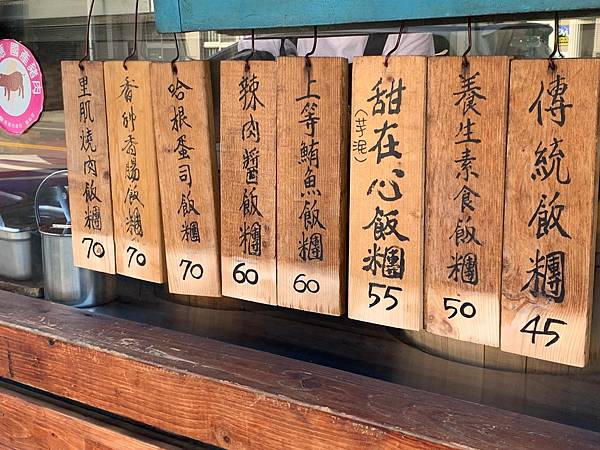 傳統飯糰
45
養生素食飯糰
50
甜在心飯糰
(芋泥)
55
上等鮪魚飯糰
60
辣肉醬飯糰
60
哈根蛋司飯糰
70
香帥香腸飯糰
70
里肌燒肉飯糰
70
國產豬肉